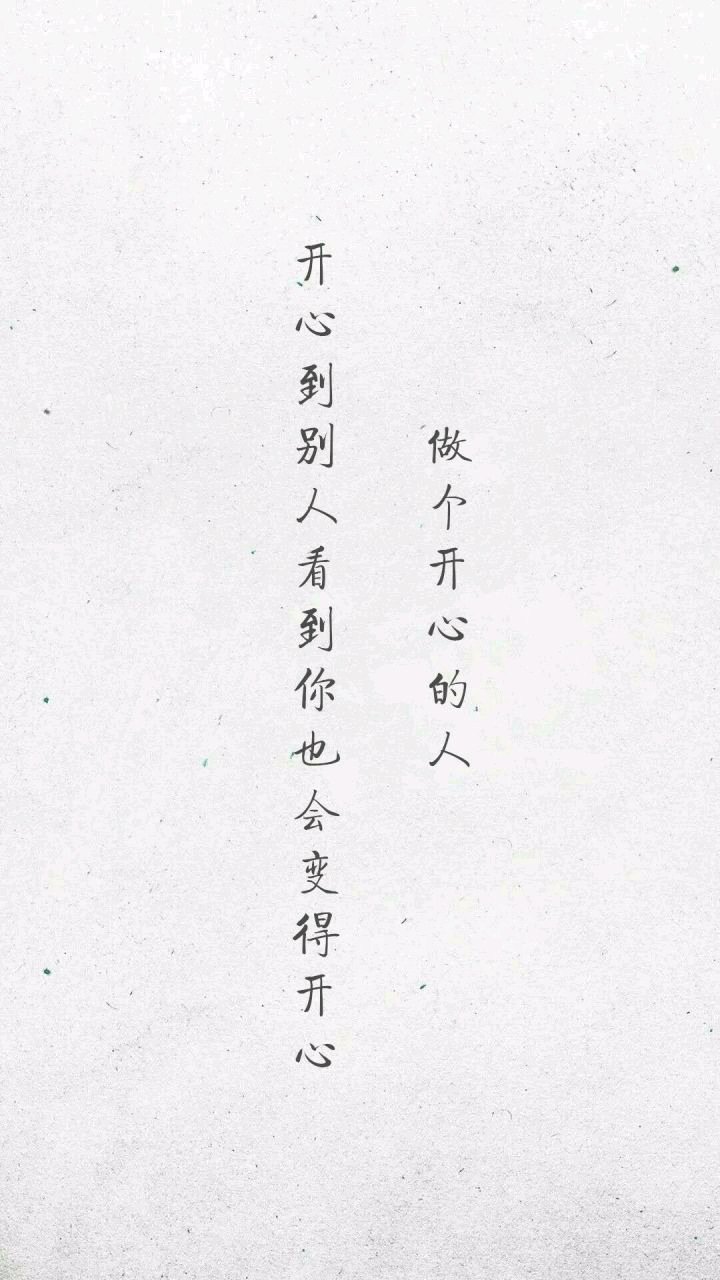 做个开心的人
开心到别人看到你也会变得开心